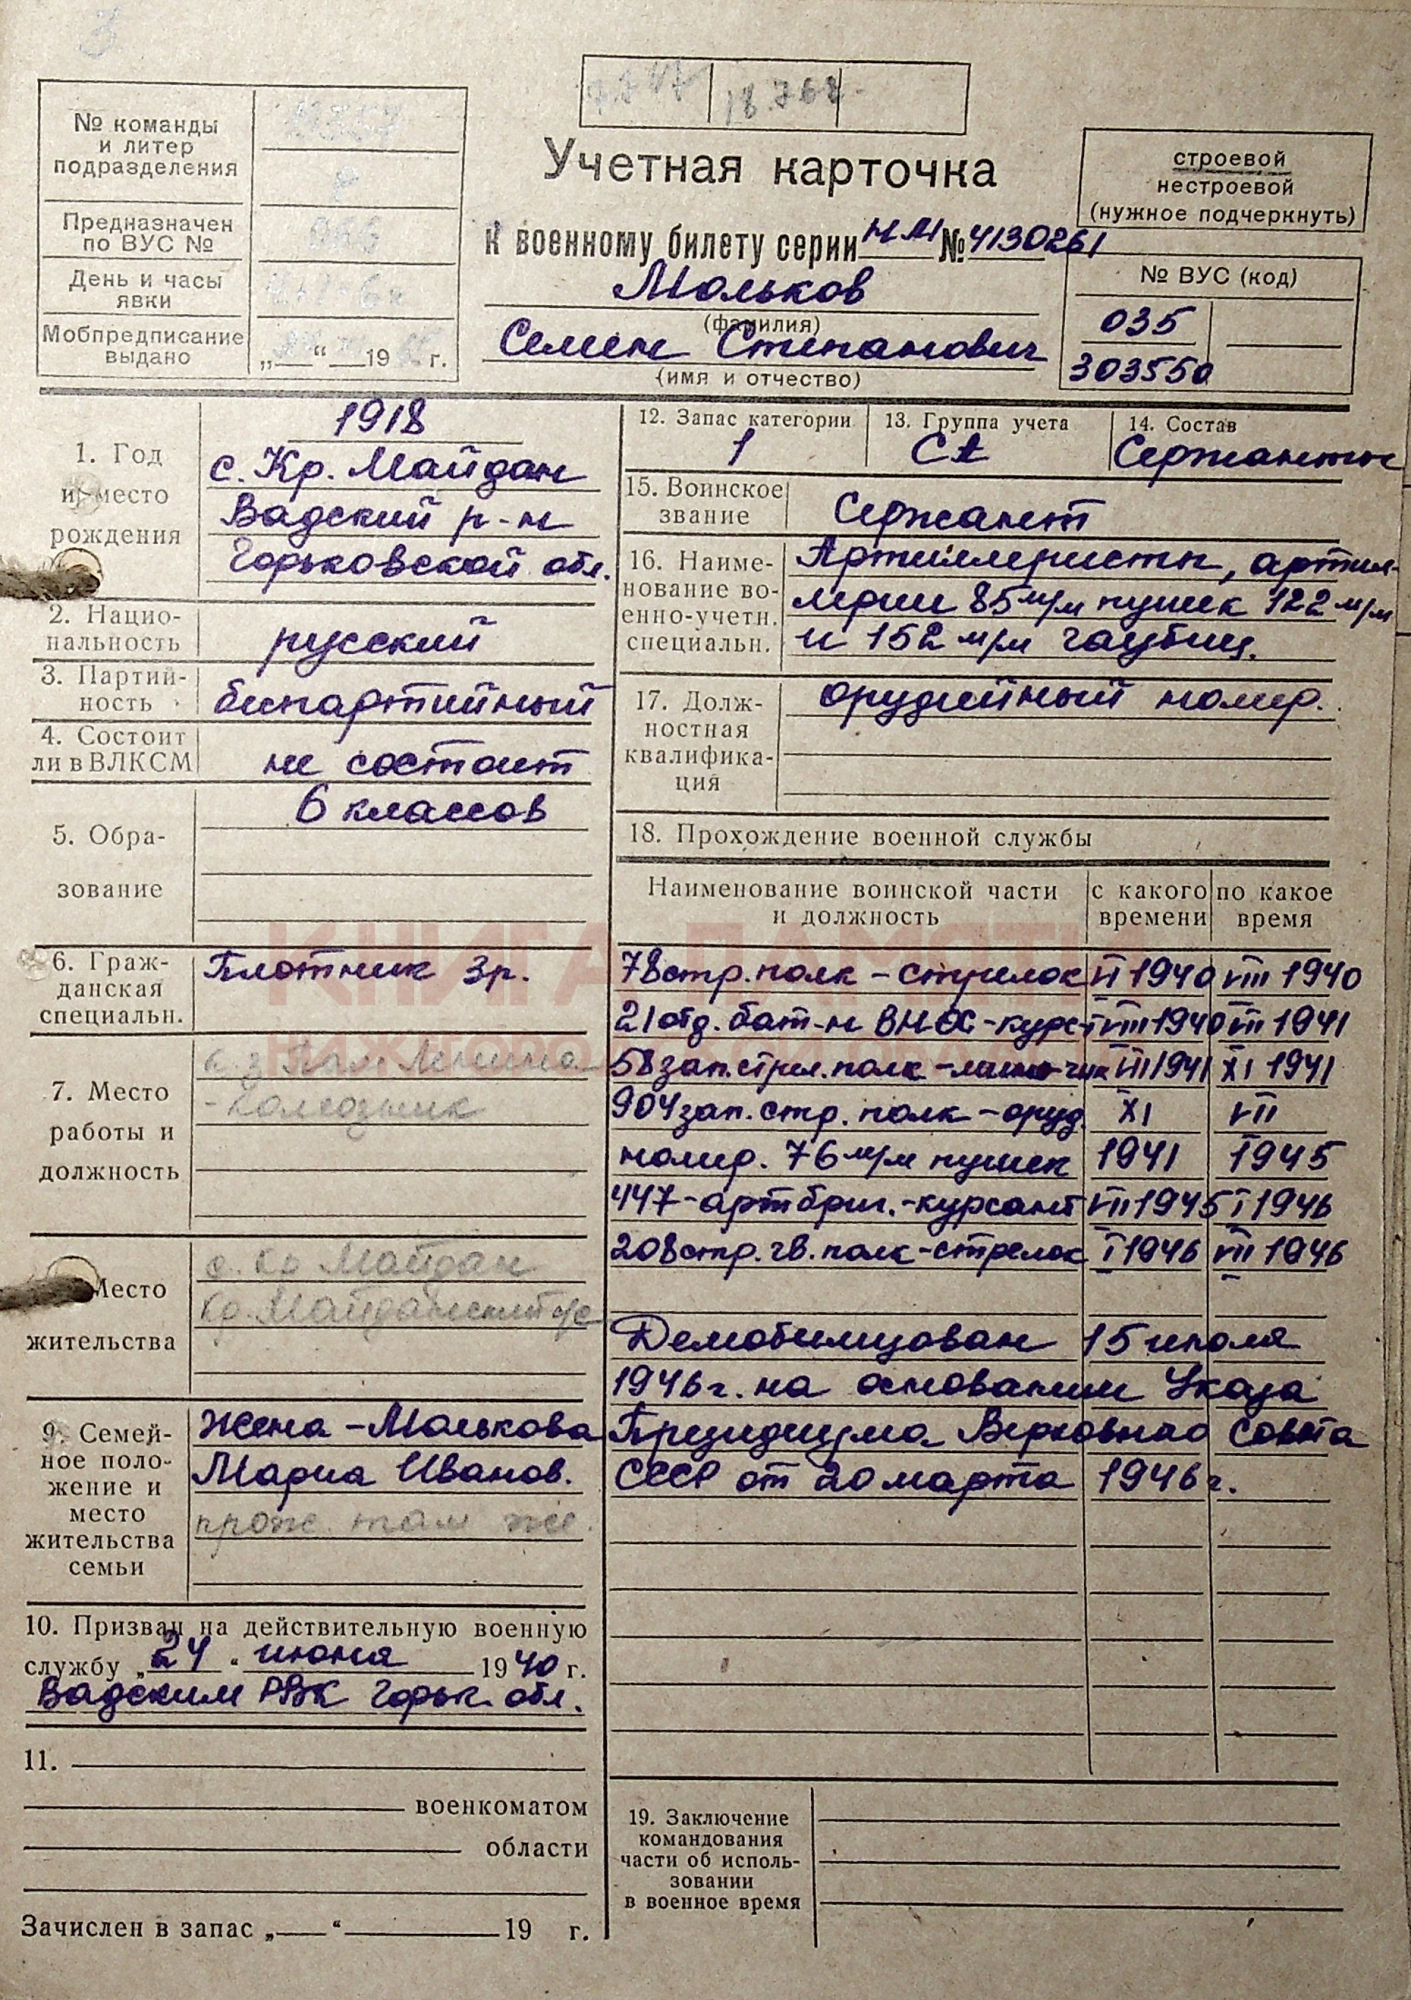 3
№ команды
и литер
подразделения
Предназначен
по ВУС №
066
День и часы
явки
Мобпредписание
выдано „ “ 19 г.
Учетная карточка
к военному билету серии НМ № 4130261
Мольков
(фамилия)
Семен Степанович
(имя и отчество)
строевой
нестроевой
(нужное подчеркнуть)
№ ВУС (код)
035
303550
1. Год
и место
рождения
1918
с. Кр. Майдан
Вадский р-н
Горьковской обл.
2. Нацио-
нальность
русский
3. Партий-
ность
беспартийный
4. Состоит
ли в ВЛКСМ
не состоит
5. Обра-
зование
6 классов
6. Граж-
данская
специальн.
Плотник 3р.
7. Место
работы и
должность
к-з Пам. Ленина
-колхозник
Место
жительства
с. Кр Майдан
Кр. Майданский с/с
9. Семей-
ное поло-
жение и
место
жительства
семьи
Жена - Молькова
Мария Иванов.
прож. там же.
10. Призван на действительную военную
службу „24“ июня 1940 г.
Вадским РВК Горьк. обл.
11.
военкоматом
области
Зачислен в запас „ “ 19 г.
12. Запас категории
1
13. Группа учета
СА
14. Состав
Сержанты
15. Воинское
звание
Сержант
16. Наиме-
нование во-
енно-учетн.
специальн.
Артиллеристы, артил-
лерии 85 м/м пушек 122 м/м
и 152 м/м гаубиц.
17. Долж-
ностная
квалифика-
ция
орудийный номер.
18. Прохождение военной службы
Наименование воинской части
и должность
с какого
времени
по какое
время
78 стр. полк - стрелок VI 1940 VIII 1940
21 отд. бат-н ВНОС - курс-т VIII 1940 VII 1941
58 зап. стрел. полк - VII 1941 XI 1941
904 зап. стр. полк - оруд. XI VII
номер. 76 м/м пушек 1941 1945
447 - арт бриг. - курсант VII 1945 I 1946
208 стр. гв. полк - стрелок I 1946 VII 1946
Демобилизован 15 июля
1946 г. на основании Указа
Президиума Верховного Совета
СССР от 20 марта 1946 г.
19. Заключение
командования
части об исполь-
зовании
в военное время
КНИГА ПАМЯТИ
НИЖЕГОРОДСКОЙ ОБЛАСТИ